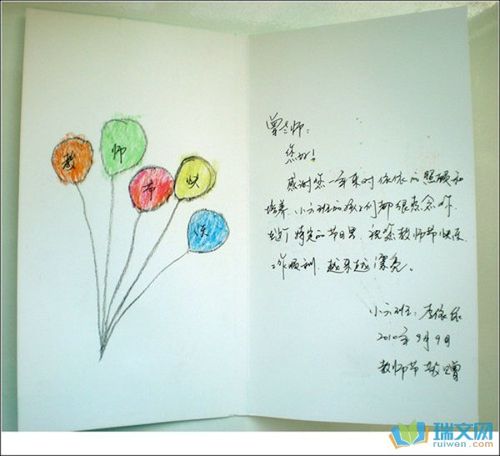 教
师
节
快
乐
曾老师:
您好!
感谢您一年来对依依的照顾和
培养.小六班的孩子们都很想念你.
在这个特定的节日里,祝您教师节快乐
工作顺利.越来越漂亮。
小六班:李依依
2010年9月9日
教师节
瑞文网
ruiwen.com